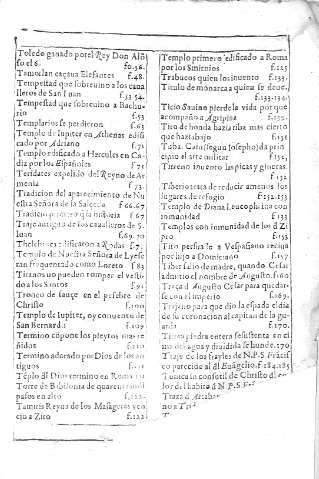 Toledo ganado por el Rey Don Alõ
so el 6. fo.56.
Tamorlan caçaua Elefantes f.48.
Tempestad que sobreuino a los caua
lleros de San Iuan f.53.54.
Tempestad que sobreuino a
rio f.53
Templarios se perdieron f.63
Templo de Iupiter en Athenas edifi
cado por Adriano f.71
Templo edificado a Hercules en Ca
diz por los Españoles f.71
Teridates expelido del Reyno de Ar
menia f.73.
Tradicion del aparecimiento de Nu
estra Señora de la Salceda f.66.67
historia f.67
Traje antiguo de los caualleros de S.
Iuan f.69.70
edificaron a Rodas f.7
Templo de Nuestra Señora de
tan frequentado como Loreto f.83
Tiranos no pueden romper el vesti
do a los Santos f.91
Tronco de sauçe en el pesebre de
Christo f.100
Templo de Iupiter, oy conuento de
San Bernardo f.109
Termino compone los pleytos mas re
ñidos f.110
Termino adorado por Dios de los an
tiguos f.111
Tẽplo del Dios termino en Roma
Torre de Babilonia de quarenta mil
pasos en alto f.122.
Tamiris Reyna de los Masagetas ven
cio a Ziro f.122
Templo primero edificado a Roma
por los Smirnios f.125
Trabucos quien los inuento f.133.
Titulo de monarca a quien se deue,
f.133.134.
Ticio Sauino pierde la vida por que
acompaña a Agripina f.152.
Tiro de honda hazia riba mas cierto
que hazia bajo f.135
(Iosepho) da prin
cipio al arte militar f.152,
Tirreno inuento las picas y
f.152
Tiberio trata de reducir a menos los
lugares de refugio f.152.153
Templo de Diana Leucophina con
inmunidad f.153
Templos con inmunidad de los d Zi
pro f.153
Tito persuade a Vespasiano reciua
por hijo a Domiciano f.157
Tiber fulio de madre, quando Cesar
adquirio el nombre de Augusto. f.160
Traça d Augusto Cesar para quedar-
se con el imperio f.169.
Trajano para que dio la espada el dia
de su coronacion al capitan de la gu-
arda f.170.
piedra entera se sustenta en ci
ma del agua y diuidida se hunde. 170
Traje de los frayles de N.P.S Frãcis
co parecido al dl Euãgelio. f.184.185
Tunica in consotil de Christo dl co
lor del habito d N P.S.F
Traza d
no a